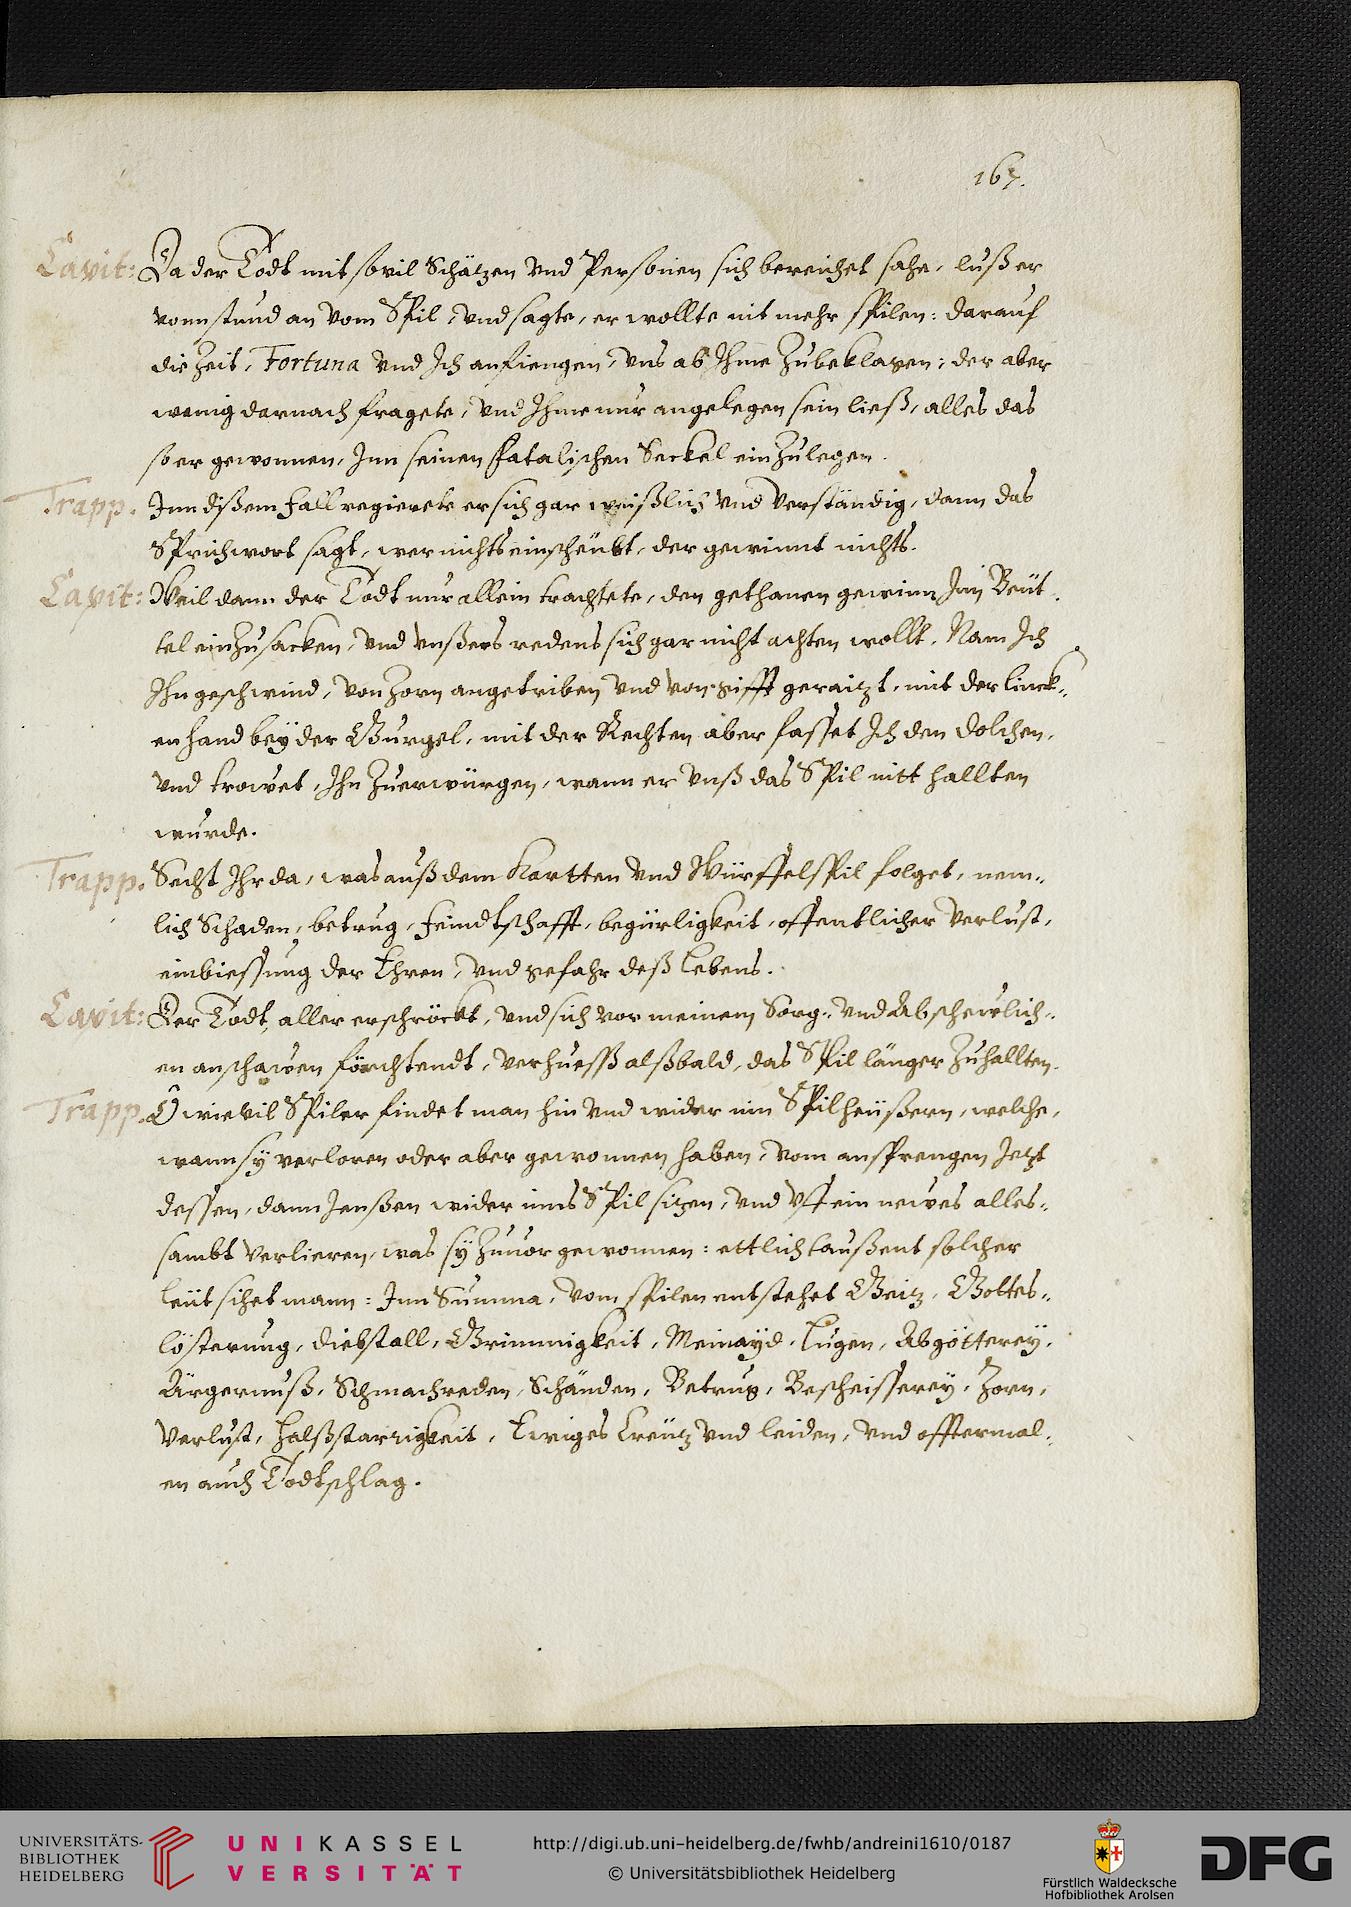 167.
Capit: Da der Todt mit sovil Schätzen vnd Personen sich bereichet sahe, luß er
vonn stund an vom Spil, vnd sagte, er wollte nit mehr spilen: darauf
die Zeit, Fortuna vnd Ich anfiengen, vns ab Ihme Zubeklagen; der aber
wenig darnach fragete, vnd Ihme nur angelegen sein ließ, alles das
so er gewonnen, Inn seinen fatalischen Seckel ein Zulegen.
Trapp. Inn dißem fall regierete er sich gar weißlich vnd verständig, dann das
Sprichwort sagt, wer nichts einschäubt, der gewinnt nichts.
Capit: Weil dann der Todt nur allein trachtete, den gethanen gewinn Inn Beüt
tel einZusacken, vnd vnßers redens sich gar nicht achten wollt, Nam Ich
Ihn geschwind, von Zorn angetriben vnd von gifft geraitzt, mit der linck-
en hand beÿ der Gurgel, mit der Rechten aber fasset Ich den dolchen,
vnd trowet, Ihn Zuerwürgen, wann er vnß das Spil nitt hallten
wurde.
Trapp. Secht Ihr da, was auß dem Kartten vnd Würffelspil folget, nem-
lich Schaden, betrug, feindtschafft, begürligkeit, offentlicher verlust,
einbiessung der Ehren, vnd gefahr deß lebens.
Capit: Der Todt, aller erschröckt, vnd sich vor meinem Sorg- vnd Abscheulich-
en anschawen förchtendt, verhuess alßbald, das Spil länger Zuhallten.
Trapp. O wie vil Spiler findet man hin vnd wider inn Spilheüßern, welche,
wann sÿ verloren oder aber gewonnen haben, vom ansprengen Jetzt
dessen, dann Jenßen wider inns Spil sitzen, vnd vff ein newes alles-
sambt verlieren, was sÿ Zuuor gewonnen: ettlich taußent solcher
leüt sihet mann: Inn Summa, vom spilen entstehet Geitz, Gottes-
lösterung, diebstall, Grimmigkeit, Meinaÿd, Lugen, Abgötterеÿ,
Ärgernuß, Schmachreden, Schänden, Betrug, Bescheisserеÿ, Zorn,
Verlust, halßstarrigkeit, Ewiges Creütz vnd leiden, vnd offtermal-
en auch Todtschlag.
UNIVERSITÄTS-
BIBLIOTHEK
HEIDELBERG
UNIKASSEL
VERSITÄT
http://digi.ub.uni-heidelberg.de/fwhb/andreini1610/0187
© Universitätsbibliothek Heidelberg
Fürstlich Waldecksche
Hofbibliothek Arolsen
DFG